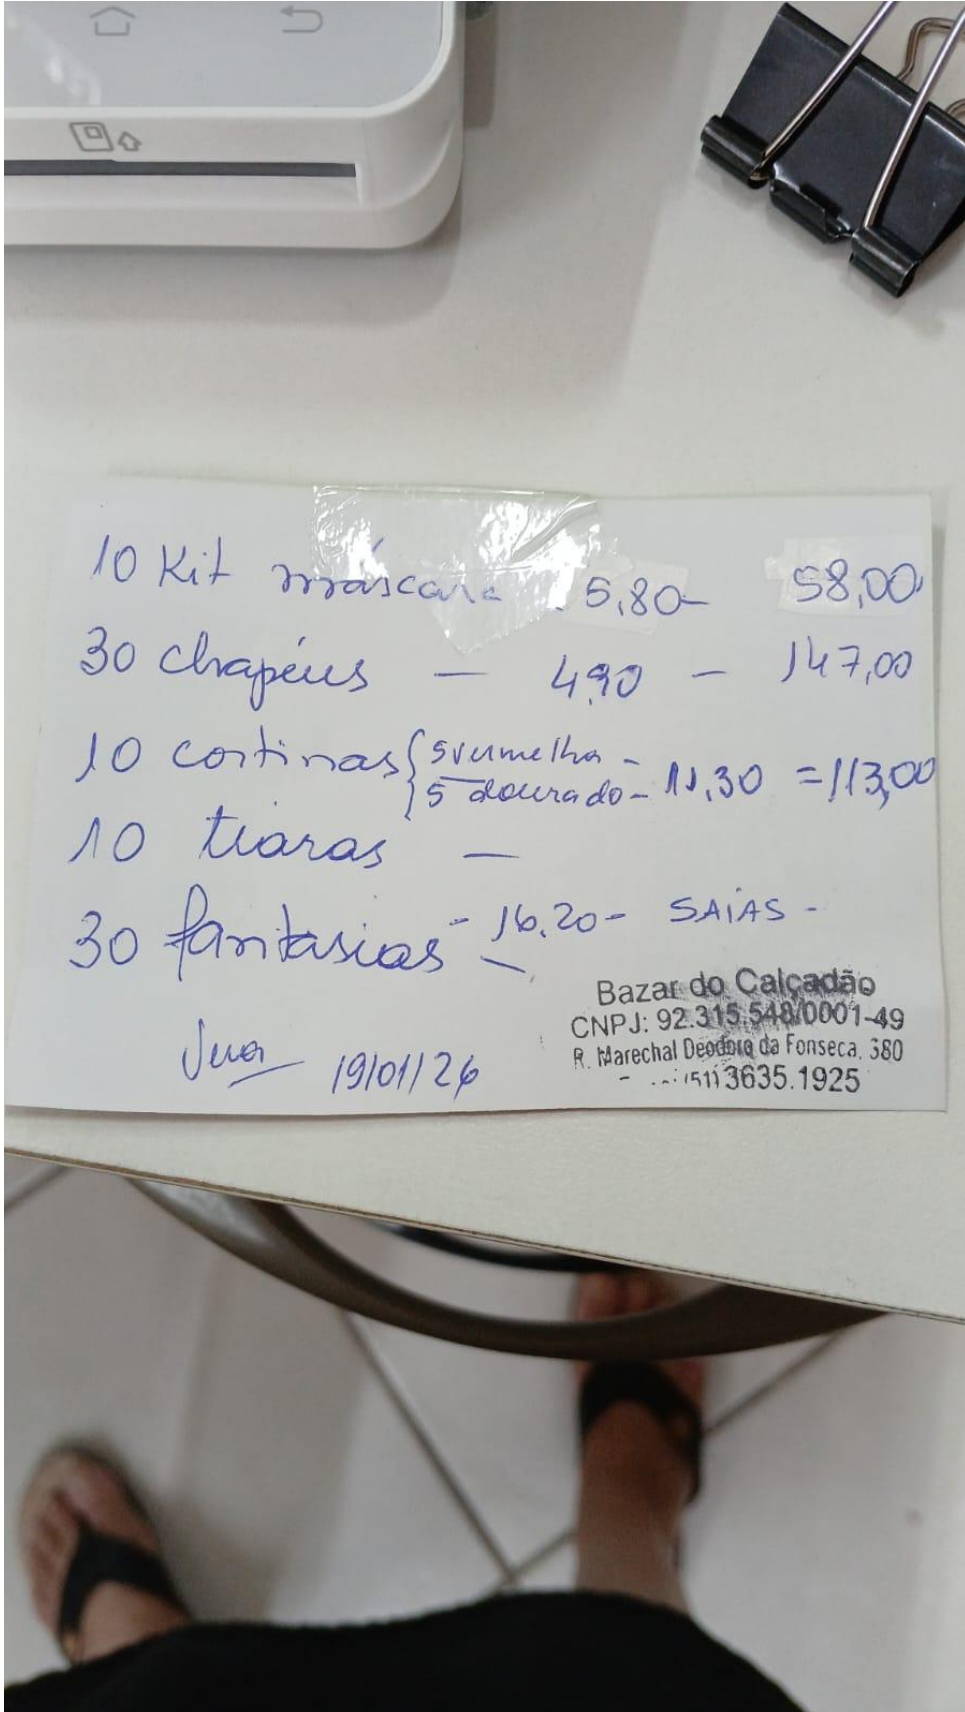 10 Kit máscara 5,80 - 58,00
30 chapéus — 4,90 - 147,00
10 cortinas { 5 vermelha -
5 dourado - 11,30 = 113,00
10 tiaras —
30 fantasias - 16,20 - SAIAS -
19/01/26
Bazar do Calçadão
CNPJ: 92.315.548/0001-49
R. Marechal Deodoro da Fonseca, 380
(51) 3635.1925